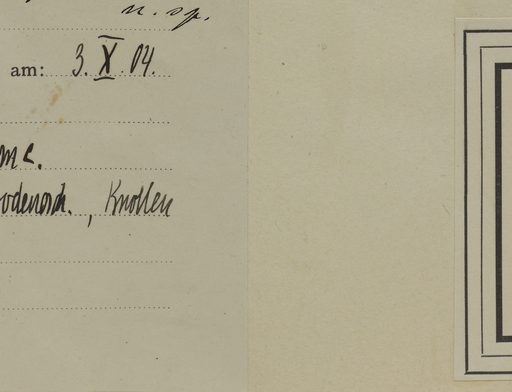 n. sp.
am: 3. X. 04.
me.
Knollen